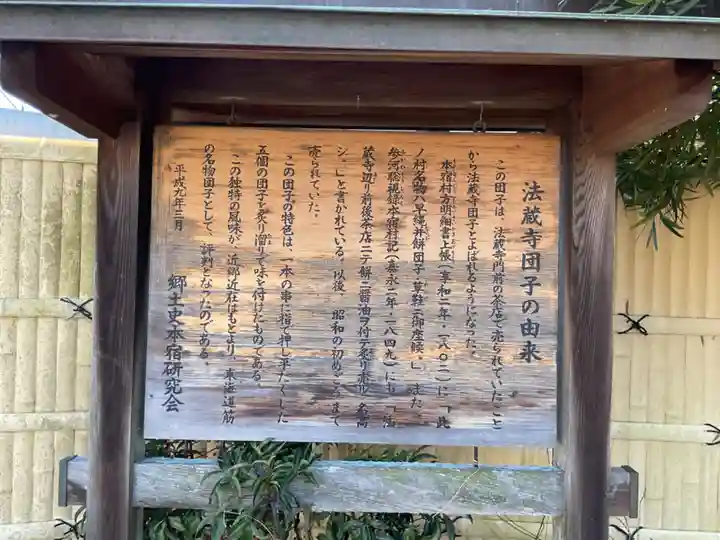 法蔵寺団子の由来
この団子は、法蔵寺門前の茶店で売られていたこと
から法蔵寺団子とよばれるようになった。
本宿村方明細書上帳(享和二年・一八〇二)に「此
ノ村名物ハ早縄并餅団子草鞋ニ御座候。」また
参河聡視録本宿村記(嘉永二年・一八四九)にも「法
蔵寺辺り前後茶店ニテ餅ニ醤油ヲ付テ炙り
シ。」と書かれている。以後、昭和の初めごろまで
売られていた。
この団子の特色は、一本の串に指で押し平たくした
五個の団子を炙り溜りで味を付けたものである。
この独特の風味が、近郷近在はもとより、東海道筋
の名物団子として、評判となったのである。
平成九年三月
郷土史本宿研究会